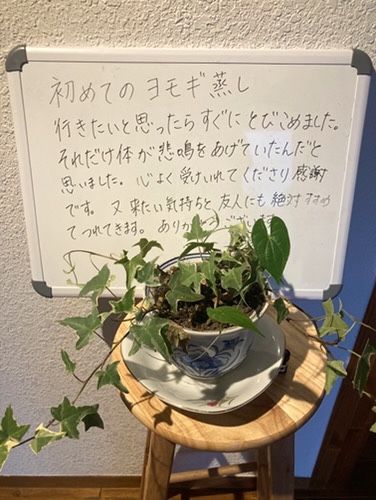 初めてのヨモギ蒸し
行きたいと思ったらすぐにとびこめました。
それだけ体が悲鳴をあげていたんだと
思いました。心よく受けいれてくださり感謝
です。又来たい気持ちと友人にも絶対すすめ
てつれてきます。ありがとうございます